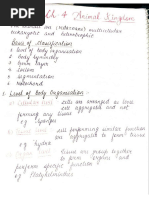 Ch 4 Animal Kingdom
multicellular
eukaryotic and heterotrophic
Basis of classification
1 level of body organisation
2 body symmetry
3 Germ layer
4 Coelom
5 segmentation
6 notochord
1. Level of Body Organisation :-
cells are arranged in loose
cell aggregates and not
forming any tissue
eg
cell performing similar function
are arranged to form tissue
eg Hydra
tissue are group together
to form organs and
perform specific function
eg Platyhelminthes